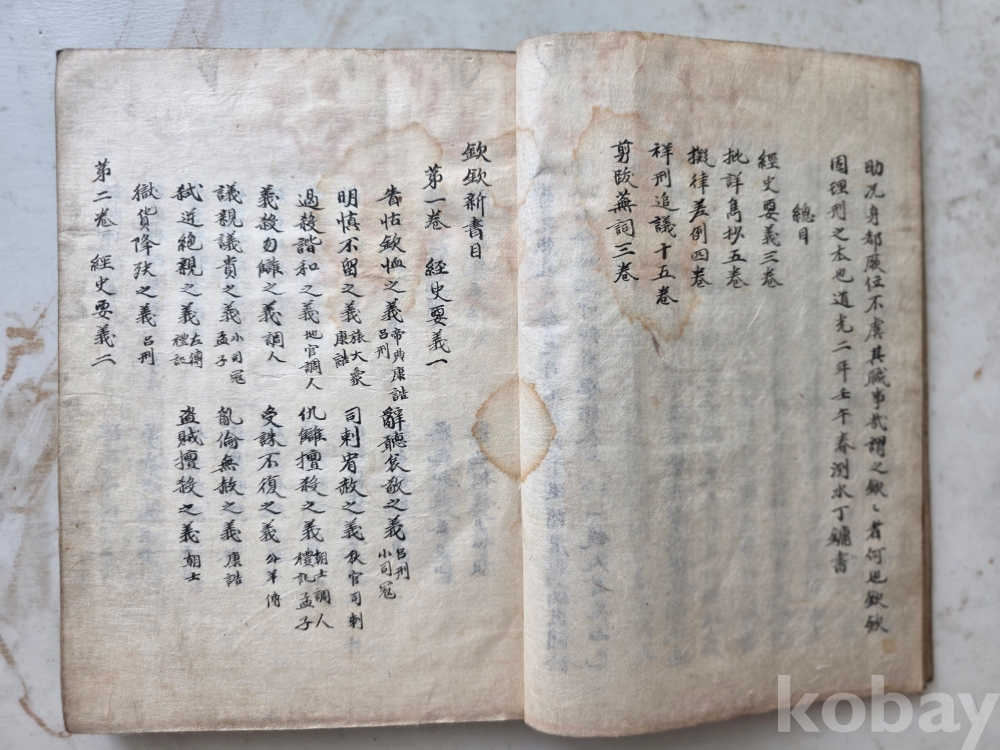 助况身都厥任不虔其職事哉謂之欽〻者何也欽欽
固理刑之本也道光二年壬午春洌水丁鏞書
總目
經史要義三卷
批詳雋抄五卷
擬律差例四卷
祥刑追議十五卷
剪跋蕪詞三卷
欽欽新書目
第一卷 經史要義一
眚怙欽恤之義 帝典康誥 呂刑 辭聽哀敬之義 呂刑 小司冦
明慎不留之義 旅大象 康誥 司刺宥赦之義 秋官司刺
過殺諧和之義 地官調人 仇讎擅殺之義 朝士調人 禮記孟子
義殺勿讎之義 調人 受誅不復之義 公羊傳
議親議貴之義 小司冦 孟子 亂倫無赦之義 康誥
弑逆絶親之義 左傳 禮記 盗賊擅殺之義 朝士
獄貨降殃之義 呂刑
第二卷 經史要義二
kobay